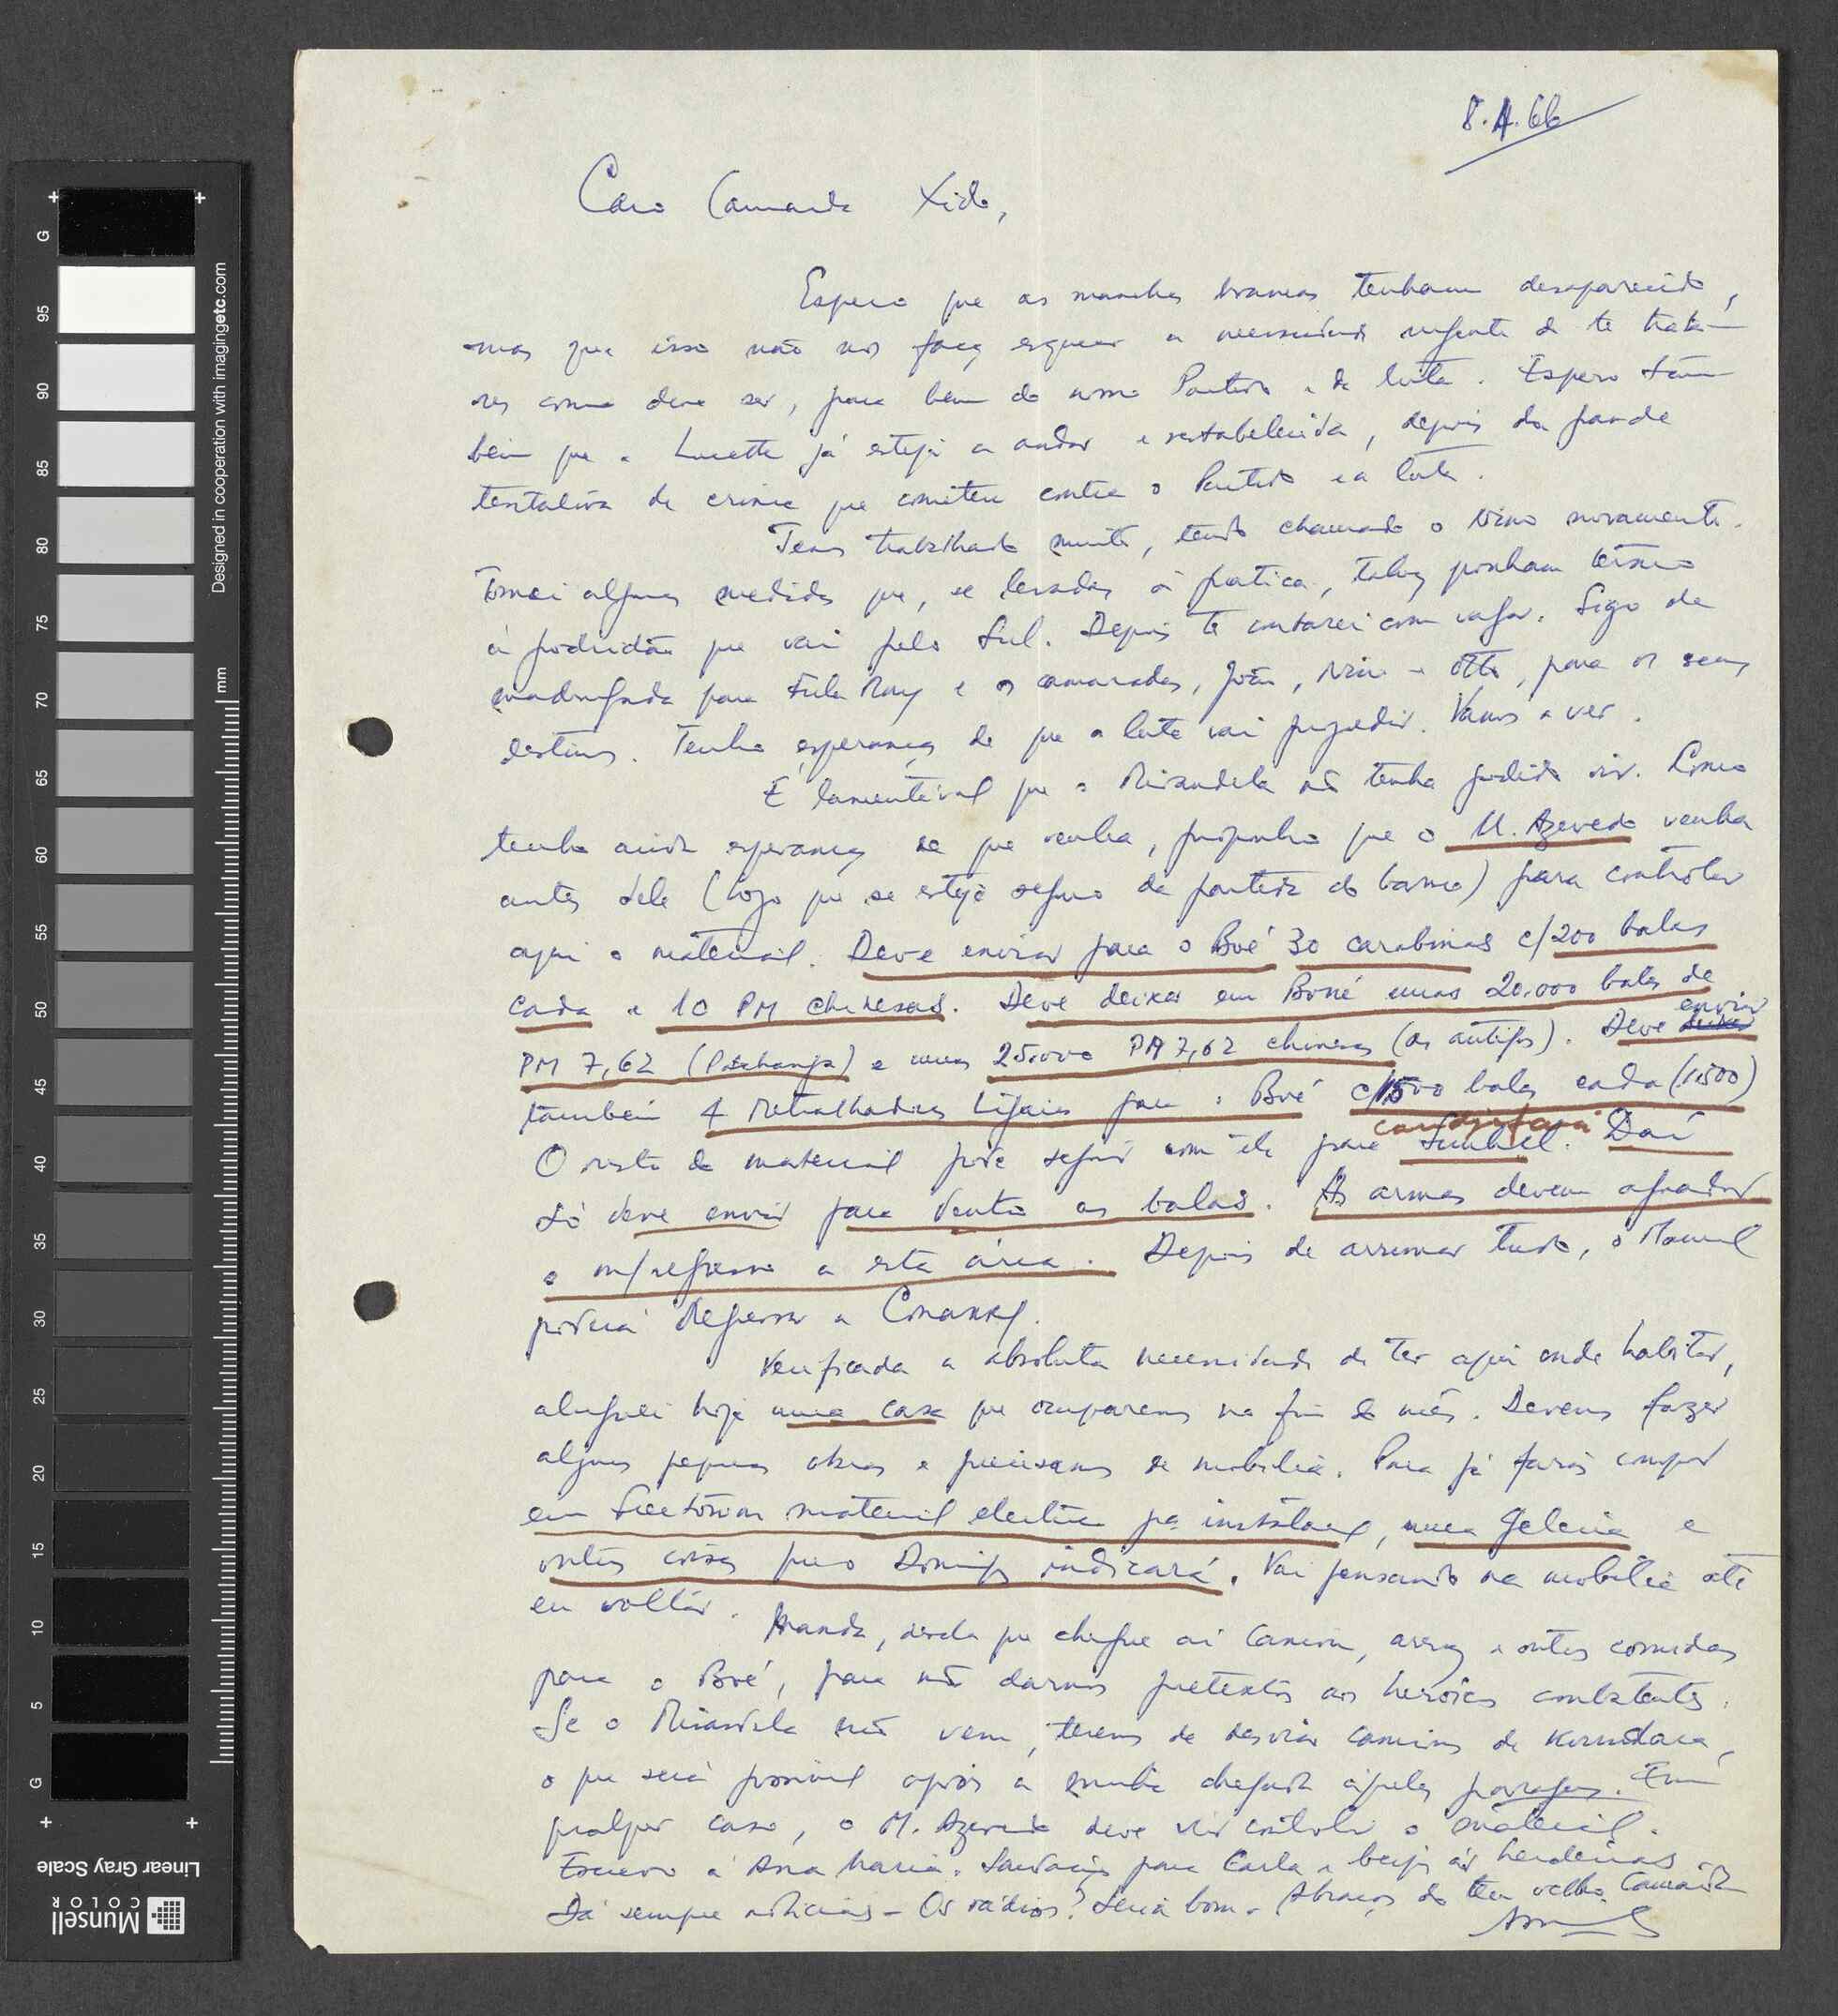 8.4.66
Caro Camarada Xido,
Espero que as manchas brancas tenham desaparecido,
mas que isso não nos faça esquecer a necessidade urgente de te trata-
res como deve ser, para bem do nosso Partido e da luta. Espero tam-
bém que a Lucette já esteja a andar e restabelecida, depois da grande
tentativa de crime que cometeu contra o Partido e a luta.
Temos trabalhado muito, tendo chamado o Nino novamente.
Tomei algumas medidas que, se levadas à prática, talvez ponham termo
à podridão que vai pelo Sul. Depois te contarei com vagar. Sigo de
madrugada para Fula Mory e os camaradas, João, Nino e Otto, para os seus
destinos. Tenho esperança de que a luta vai progredir. Vamos a ver.
É lamentável que o Mirandela não tenha podido vir. Como
tenho ainda esperança de que venha, proponho que o M. Azevedo venha
antes dele (logo que se esteja seguro da partida do barco) para controlar
aqui o material. Deve enviar para o Boé 30 carabinas c/200 balas
cada e 10 PM chinesas. Deve deixar em Boké umas 20.000 balas de
PM 7,62 (Patchanga) e umas 25.000 PM 7,62 chinesas (as antigas). Deve enviar
também 4 Metralhadoras Ligeiras para o Boé c/1500 balas cada (1.500)
O resto do material pode seguir com ele para . Daí
só deve enviar para dentro as balas. As armas devem aguardar
o m/regresso a esta área. Depois de arrumar tudo, o Manuel
poderá regressar a Conakry.
Verificada a absoluta necessidade de ter aqui onde habitar,
aluguei hoje uma casa que ocuparemos no fim do mês. Devemos fazer
algumas pequenas obras e precisamos de mobília. Para já farás comprar
em material eléctrico pa instalação, uma geleira e
outras coisas que o Domingos indicará. Vai pensando na mobília até
eu voltar.
Manda, desde que chegue aí camion, arroz e outras comidas
para o Boé, para não darmos pretextos aos heróicos combatentes.
Se o Mirandela não vem, temos de desviar camions de Koundara,
o que será possível após a minha chegada àquelas paragens. Em
qualquer caso, o M. Azevedo deve vir controlar o material.
Escrevo à Ana Maria. Saudações para Carla e beijos às herdeiras.
Dá sempre notícias - Os rádios? Seria bom - Abraços do teu velho Camarada